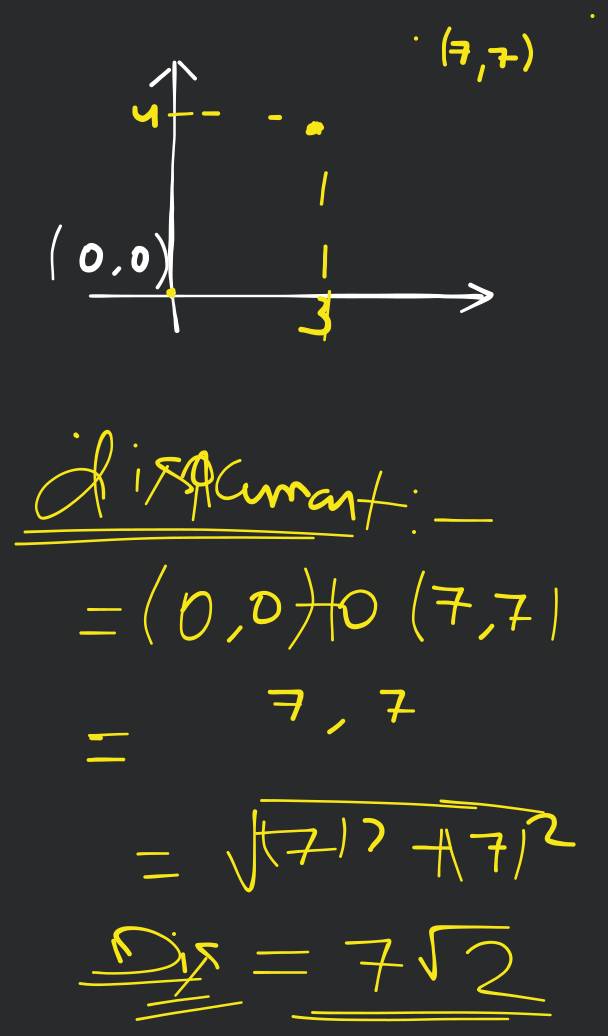 (7,7)
4
(0,0)
3
displacmant:—
=(0,0) to (7,7)
= 7, 7
= √(7)² + (7)²
Dis = 7√2